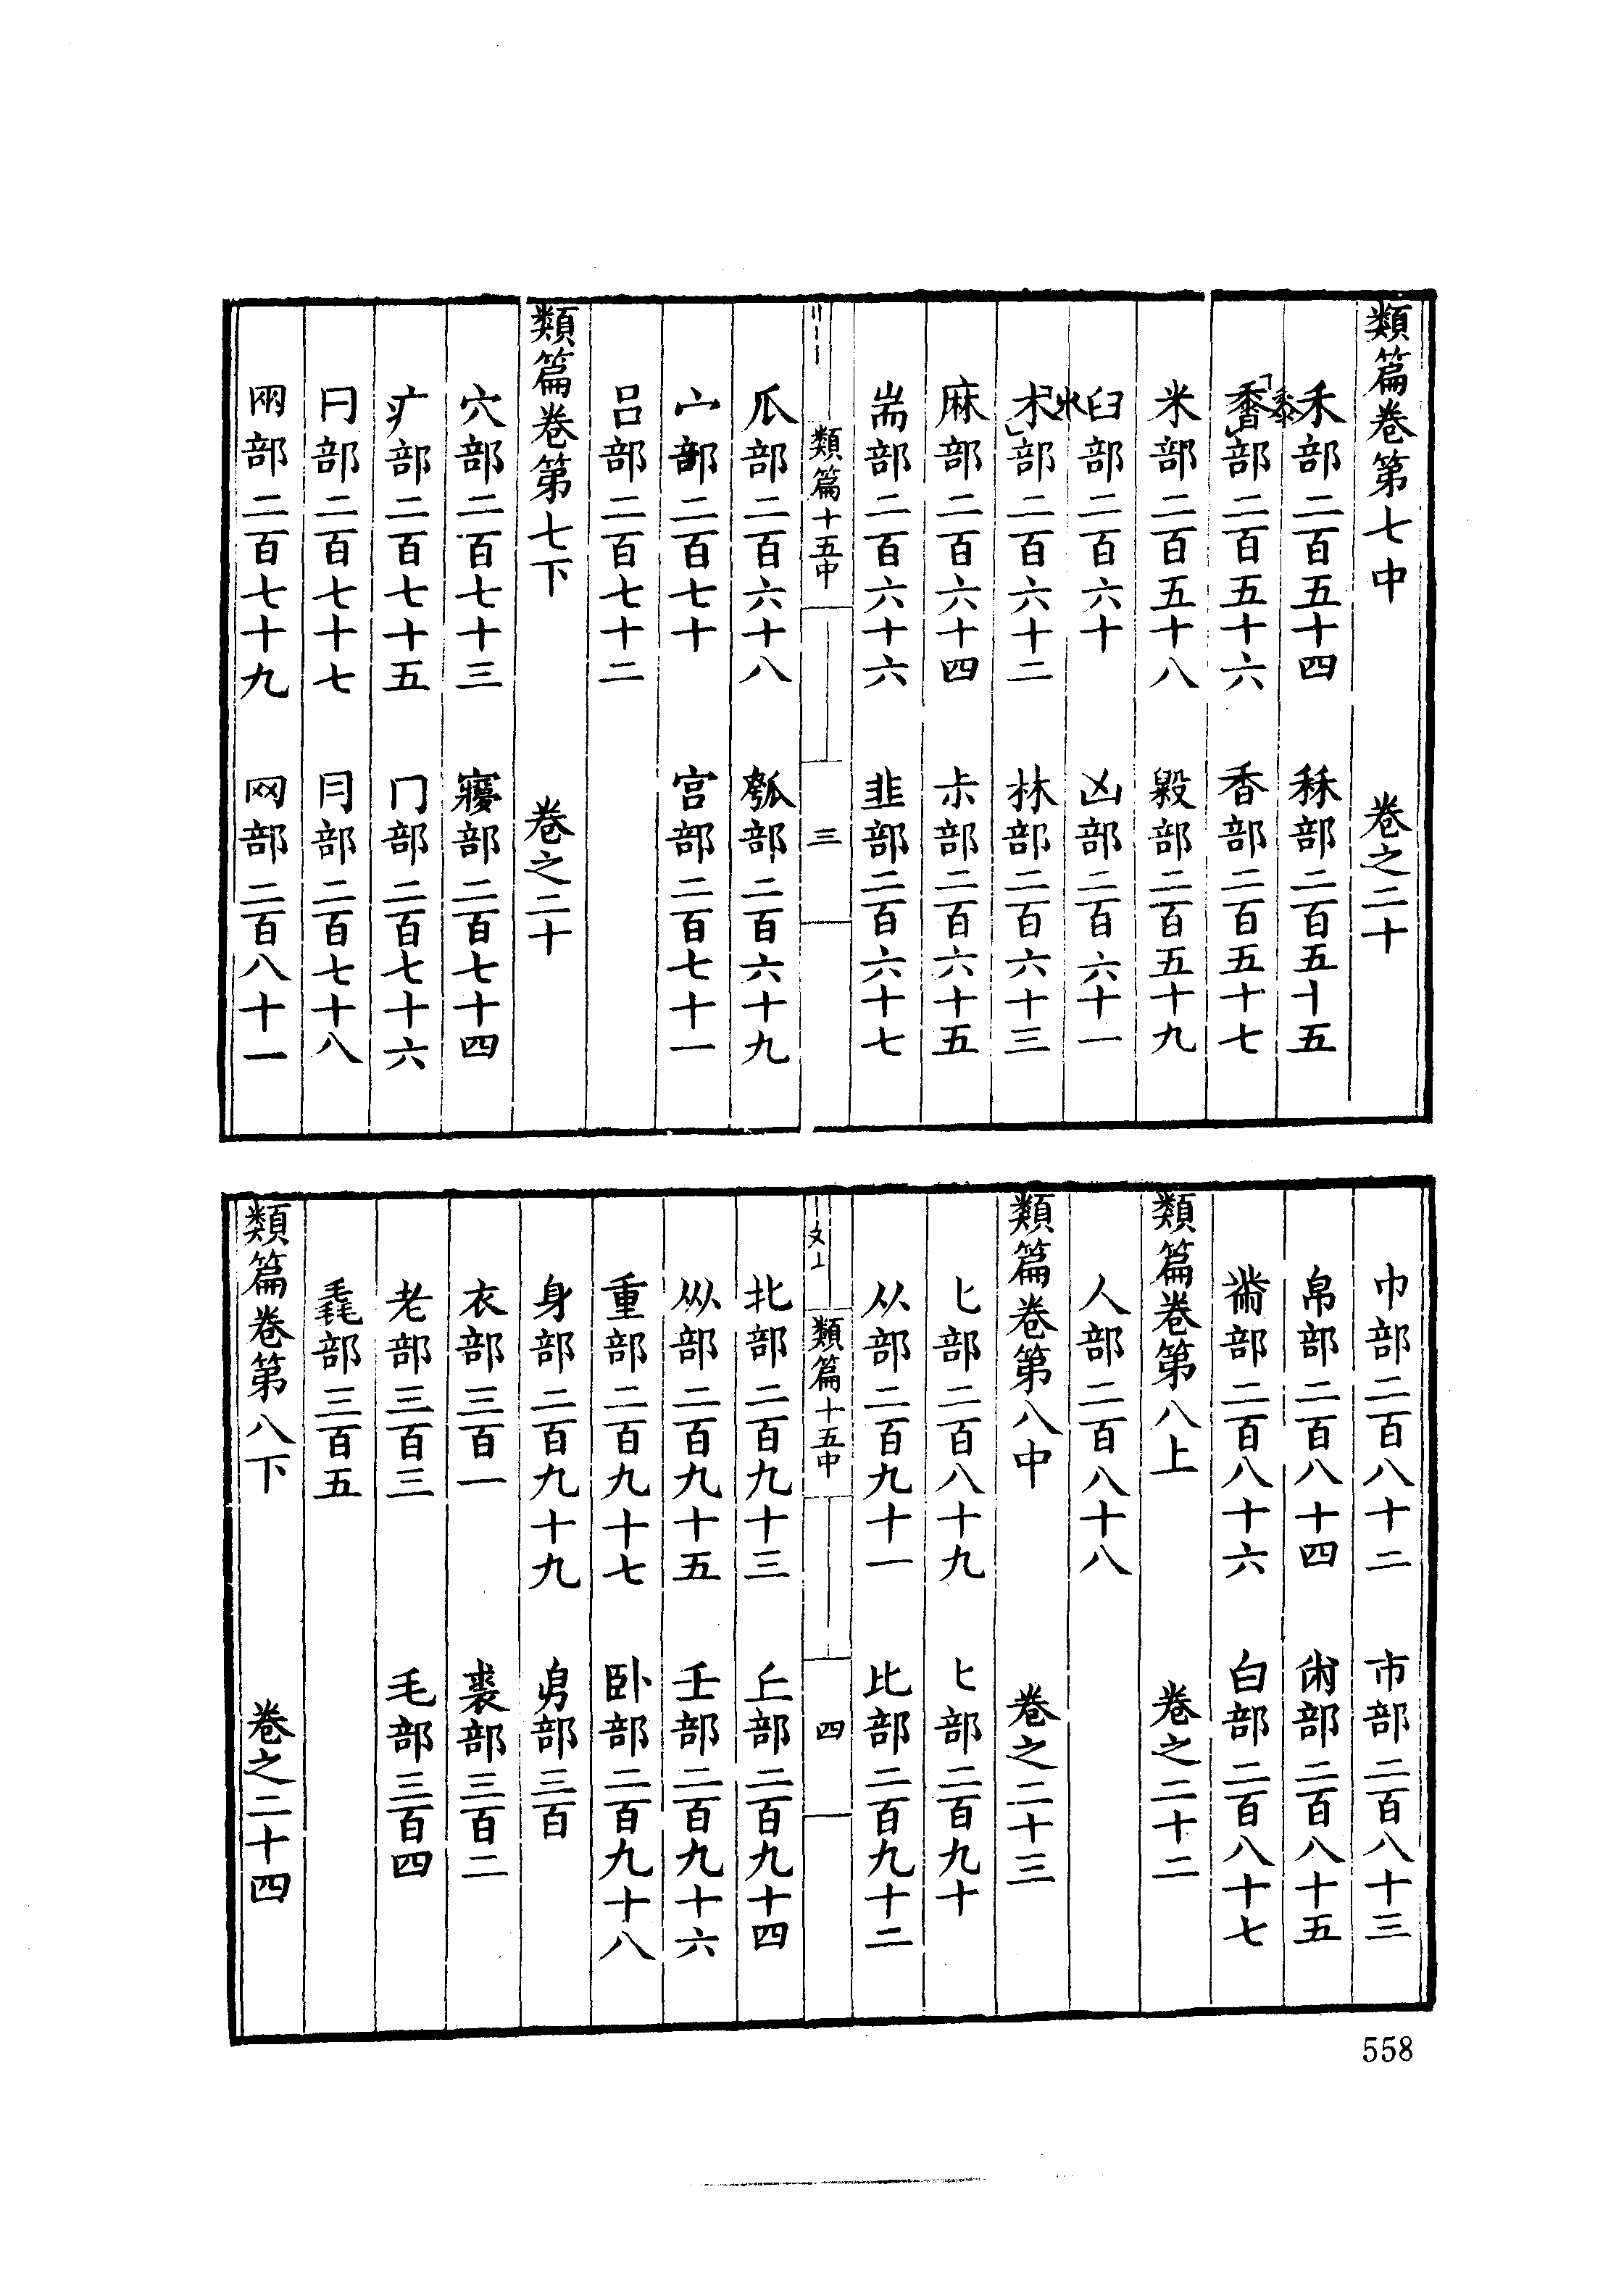 類篇卷第七中 卷之二十
禾部二百五十四 秝部二百五十五
黍
部二百五十六 香部二百五十七
米部二百五十八 毇部二百五十九
臼部二百六十 凶部二百六十一
部二百六十二 𣏟部二百六十三
麻部二百六十四 尗部二百六十五
耑部二百六十六 韭部二百六十七
類篇十五中 三
瓜部二百六十八 瓠部二百六十九
宀部二百七十 宫部二百七十一
吕部二百七十二
類篇卷第七下 卷之二十
穴部二百七十三 㝱部二百七十四
疒部二百七十五 冂部二百七十六
冃部二百七十七 冃部二百七十八
㒳部二百七十九 网部二百八十一
巾部二百八十二 巿部二百八十三
帛部二百八十四 㡀部二百八十五
黹部二百八十六 白部二百八十七
類篇卷第八上 卷之二十二
人部二百八十八
類篇卷第八中 卷之二十三
匕部二百八十九 匕部二百九十
从部二百九十一 比部二百九十二
類篇十五中 四
北部二百九十三 丘部二百九十四
㐺部二百九十五 壬部二百九十六
重部二百九十七 卧部二百九十八
身部二百九十九 㐆部三百
衣部三百一 裘部三百二
老部三百三 毛部三百四
毳部三百五
類篇卷第八下 卷之二十四
558